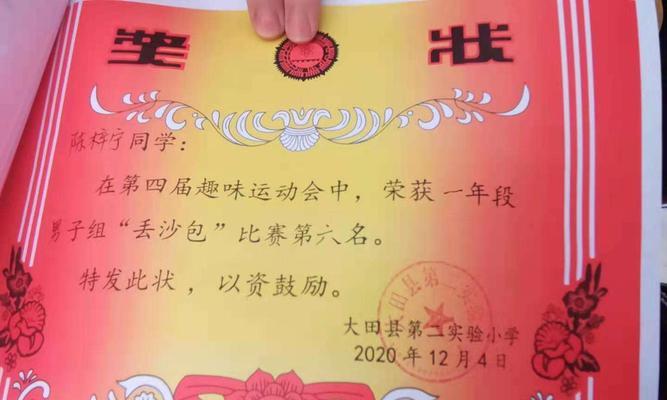 奖状
陈梓宁同学：
在第四届趣味运动会中，荣获一年段
男子组“丢沙包”比赛第六名。
特发此状，以资鼓励。
大田县第二实验小学
2020年12月4日
大田县第二实验